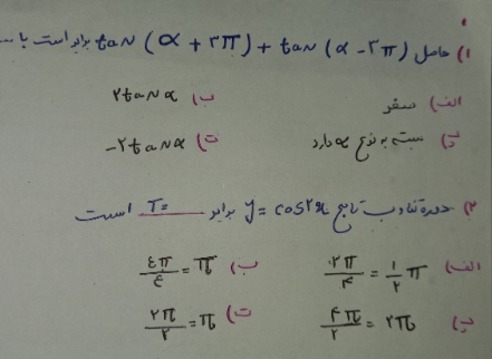 ۱) حاصل tan (α + ۳π) + tan (α - ۳π) برابر است با ...
الف) صفر ب) ۲tanα
پ) بسته به نوع α دارد ت) -۲tanα
۲) دوره تناوب تابع y = cos²x برابر T = ____ است
الف) ۲π/۴ = ۱/۲ π ب) ٤π/٤ = π
پ) ۴π/۲ = ۲π ت) ۲π/۲ = π